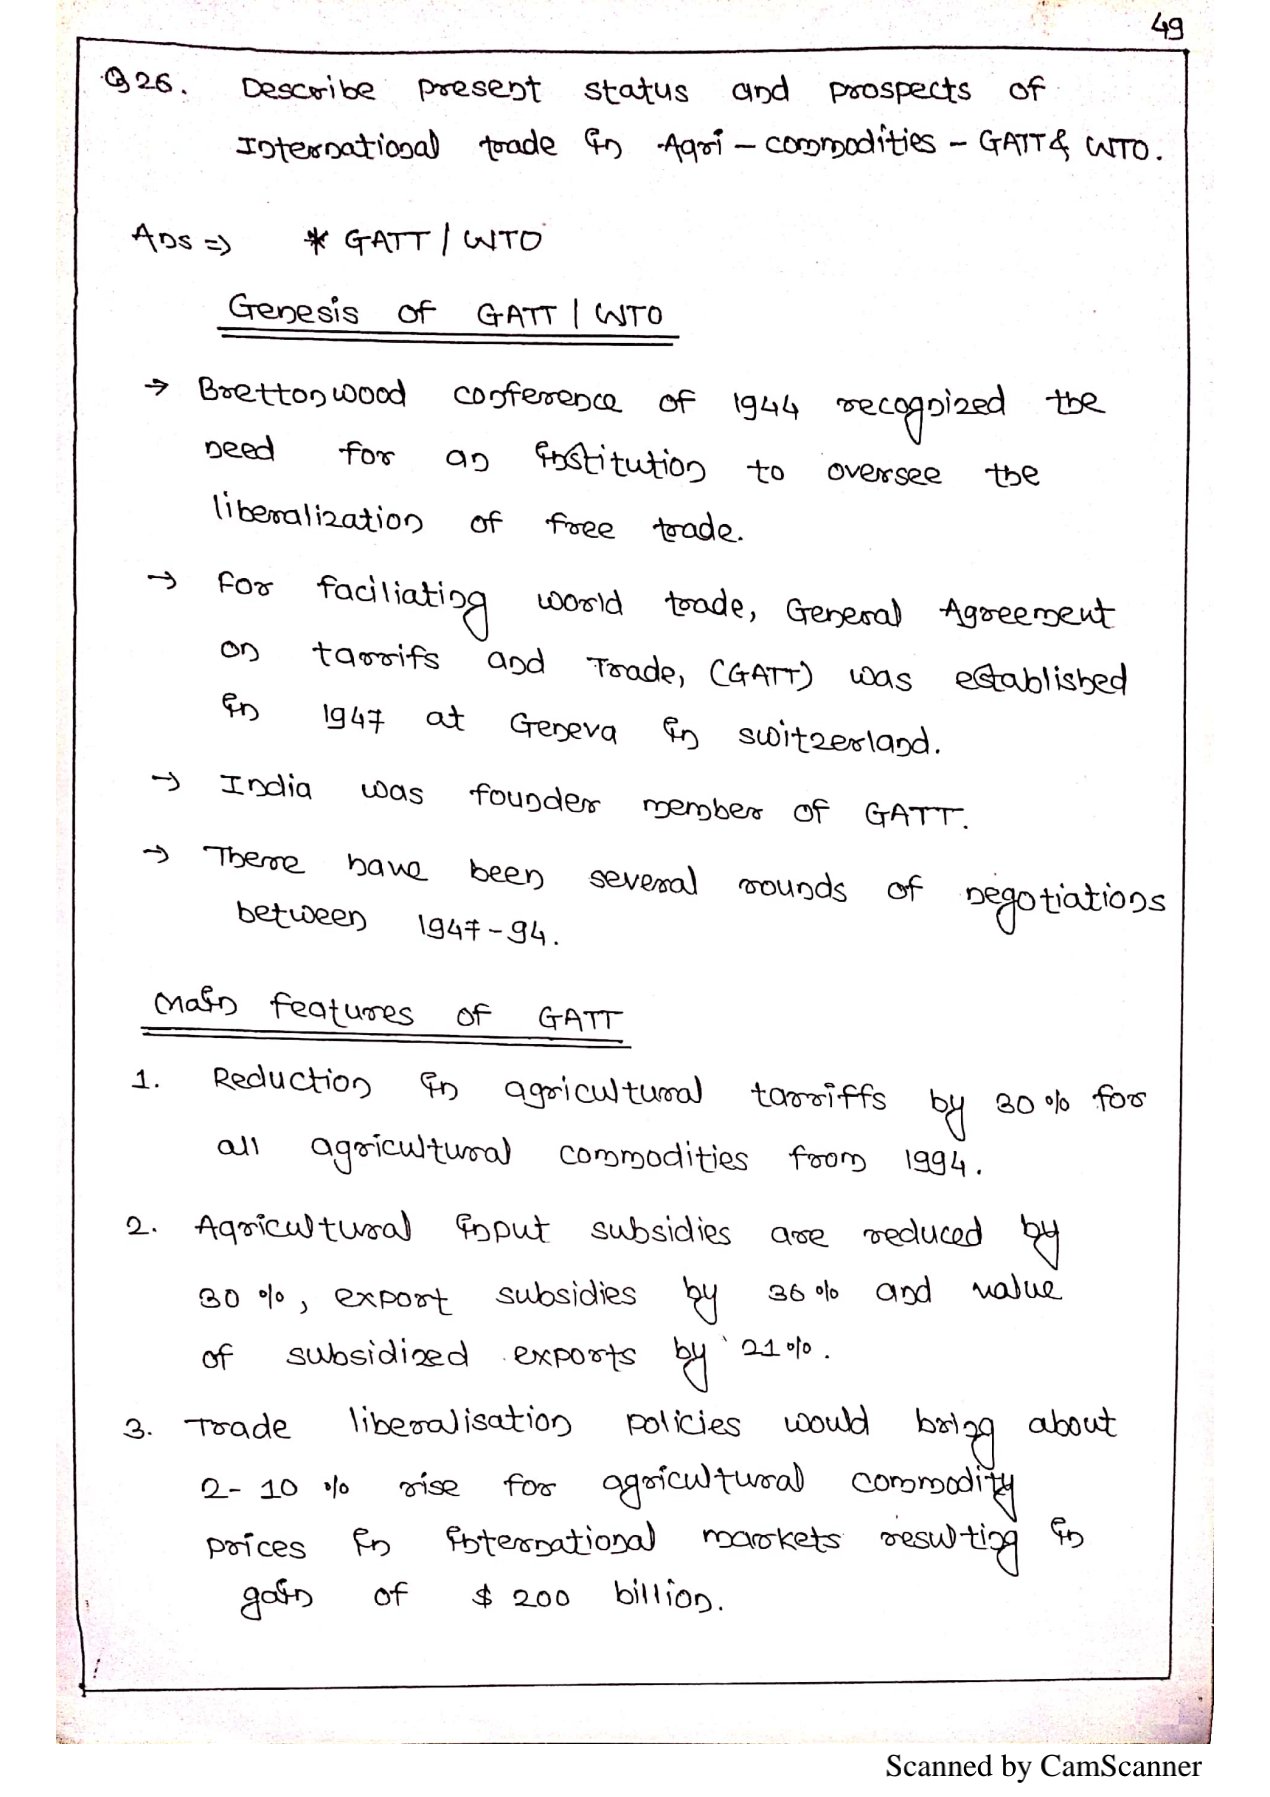 49
Q26. Describe present status and prospects of
International trade in Agri - commodities - GATT & WTO.
Ans => * GATT / WTO
Genesis of GATT / WTO
→ Brettonwood conference of 1944 recognized the
need for an institution to oversee the
liberalization of free trade.
→ For faciliating world trade, General Agreement
on tarrifs and Trade, (GATT) was established
in 1947 at Geneva in switzerland.
→ India was founder member of GATT.
→ There have been several rounds of negotiations
between 1947-94.
Main features of GATT
1. Reduction in agricultural tarriffs by 30% for
all agricultural commodities from 1994.
2. Agricultural input subsidies are reduced by
30%, export subsidies by 36% and value
of subsidized exports by 21%.
3. Trade liberalisation policies would bring about
2-10 % rise for agricultural commodity
prices in international markets resulting in
gain of $ 200 billion.
Scanned by CamScanner